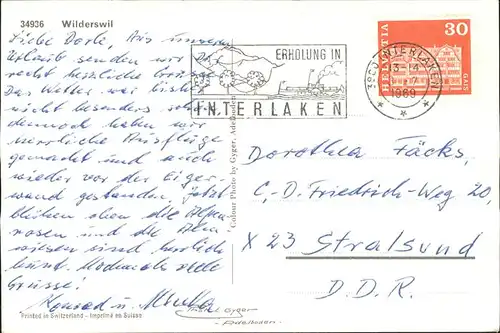 34936 Wilderswil
Liebe Dorle, Aus unserem
Urlaub senden wir Dir
recht herzliche Grüsse.
Das Wetter war bisher
nicht besonders,
dennoch haben wir
herrliche Ausflüge
gemacht und auch
wieder vor der Eiger-
wand gestanden. Jetzt
blühen oben die Alpen-
rosen und die Alm-
wiesen sind herrlich
bunt. Nochmals viele
Grüsse!
Konrad u.
Printed in Switzerland - Imprimé en Suisse
Colour Photo by Gyger, Adelboden
Gyger
Adelboden
ERHOLUNG IN
INTERLAKEN
3800 INTERLAKEN
1969
HELVETIA
30
GAIS
Dorothea Fäcks,
C.-D.-Friedrich-Weg 20,
X 23 Stralsund
D.D.R.